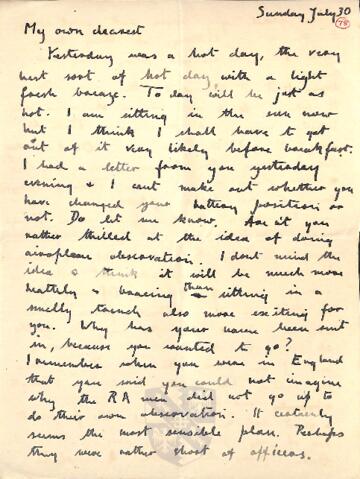 Sunday July 30
78
My own dearest
Yesterday was a hot day, the very
best sort of hot day with a light
fresh breeze. To day will be just as
hot. I am sitting in the sun now
but I think I shall have to get
out of it very likely before breakfast.
I had a letter from you yesterday
evening & I cant make out whether you
have changed your battery position or
not. Do let me know. Are you
rather thrilled at the idea of doing
aeroplane observation. I dont mind the
idea & think it will be much more
healthy & bracing than sitting in a
smelly trench also more exciting for
you. Why has your name been sent
in, because you wanted to go?
I remember when you were in England
that you said you could not imagine
why the RA men did not go up to
do their own observation. It certainly
seems the most sensible plan. Perhaps
they were rather short of officers.